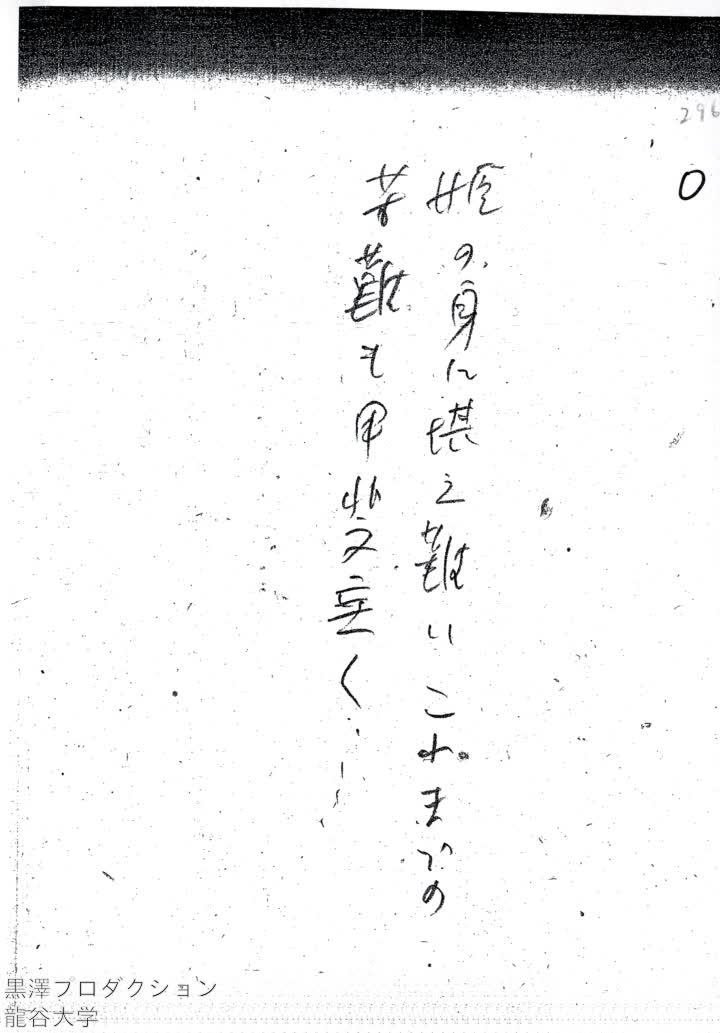 296
○
姫の身に堪え難いこれまでの
苦難も甲斐無く……
黒澤プロダクション
龍谷大学